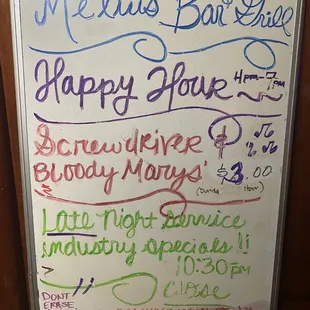 Melus Bar Grill
Happy Hour 4pm-7pm
Screwdriver &
Bloody Marys' $3.00
Hour)
Late Night Service
industry specials!!
10:30pm
Close
DONT
ERASE